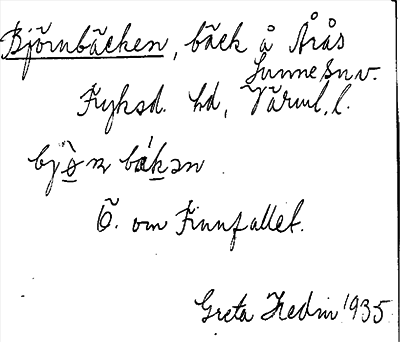 Björnbäcken, bäck å Årås
Sunne sn v.
Fryksd. hd, Värml. l.
bjὼ̱n bákən
Ö. om Finnfallet.
Greta Hedin 1935